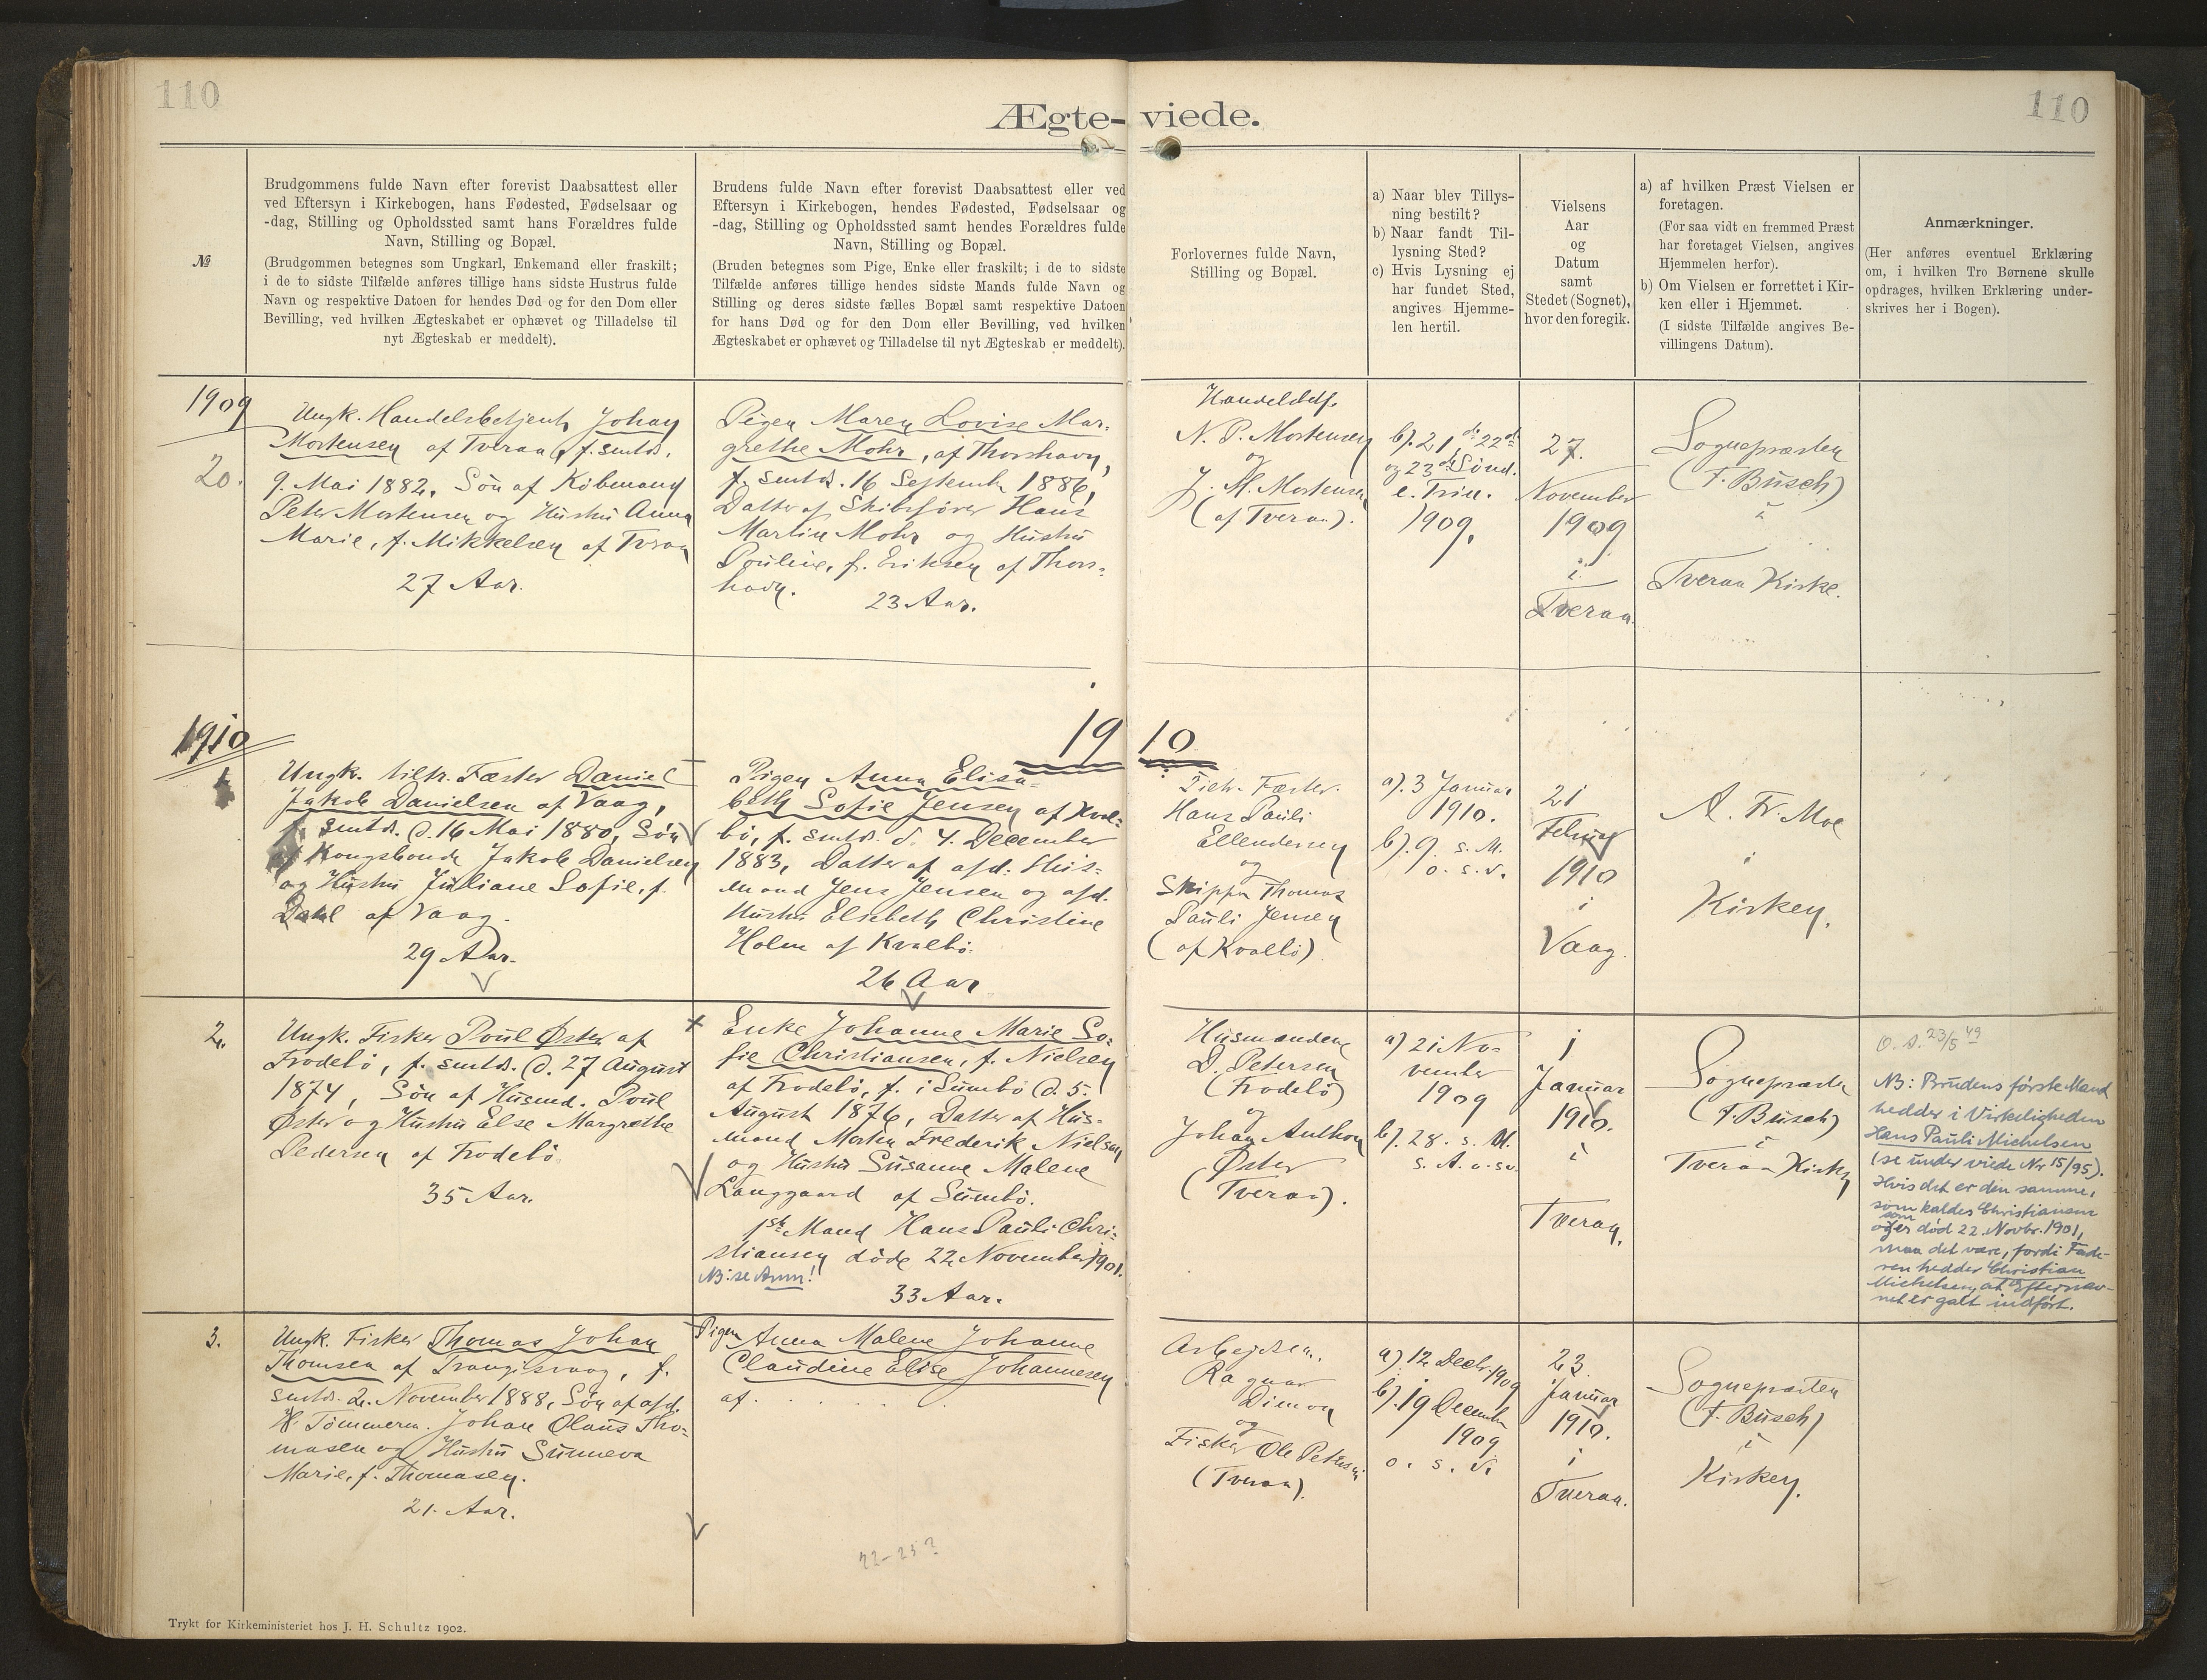 110
110
Ægte-viede.
№
Brudgommens fulde Navn efter forevist Daabsattest eller
ved Eftersyn i Kirkebogen, hans Fødested, Fødselsaar og
-dag, Stilling og Opholdssted samt hans Forældres fulde
Navn, Stilling og Bopæl.
(Brudgommen betegnes som Ungkarl, Enkemand eller fraskilt;
i de to sidste Tilfælde anføres tillige hans sidste Hustrus fulde
Navn og respektive Datoen for hendes Død og for den Dom eller
Bevilling, ved hvilken Ægteskabet er ophævet og Tilladelse til
nyt Ægteskab er meddelt).
Brudens fulde Navn efter forevist Daabsattest eller ved
Eftersyn i Kirkebogen, hendes Fødested, Fødselsaar og
-dag, Stilling og Opholdssted samt hendes Forældres fulde
Navn, Stilling og Bopæl.
(Bruden betegnes som Pige, Enke eller fraskilt; i de to sidste
Tilfælde anføres tillige hendes sidste Mands fulde Navn og
Stilling og deres sidste fælles Bopæl samt respektive Datoen
for hans Død og for den Dom eller Bevilling, ved hvilken
Ægteskabet er ophævet og Tilladelse til nyt Ægteskab er meddelt).
Forlovernes fulde Navn,
Stilling og Bopæl.
a) Naar blev Tillys-
ning bestilt?
b) Naar fandt Til-
lysning Sted?
c) Hvis Lysning ej
har fundet Sted,
angives Hjemme-
len hertil.
Vielsens
Aar
og
Datum
samt
Stedet (Sognet),
hvor den foregik.
a) af hvilken Præst Vielsen er
foretagen.
(For saa vidt en fremmed Præst
har foretaget Vielsen, angives
Hjemmelen herfor).
b) Om Vielsen er forrettet i Kir-
ken eller i Hjemmet.
(I sidste Tilfælde angives Be-
villingens Datum).
Anmærkninger.
(Her anføres eventuel Erklæring
om, i hvilken Tro Børnene skulle
opdrages, hvilken Erklæring under-
skrives her i Bogen).
1909
20.
Ungk. Handelsbetjent Johan
Mortensen af Tveraa, f. smtds.
9. Mai 1882, Søn af Købmand
Peter Mortensen og Hustru Anna
Marie, f. Mikkelsen af Tveraa
27 Aar.
Pigen Maren Lovise Mar-
grethe Mohr, af Thorshavn,
f. smtds. 16 September 1886,
Datter af Skibsfører Hans
Martin Mohr og Hustru
Pouline, f. Eriksen af Thors-
havn.
23 Aar.
Handelsbetj.
N. P. Mortensen
og
J. M. Mortensen
(af Tveraa).
b). 21de 22de
og 23de Sønd.
e. Trin.
1909.
27.
November
1909
i
Tveraa.
Sognepræsten
(F. Busch)
i
Tveraa Kirke.
1910
1910
1
Ungk. tiltr. Fæster Daniel
Jakob Danielsen af Vaag,
f. smtds. d. 16 Mai 1880, Søn
af Kongsbonde Jakob Danielsen
og Hustru Juliane Sofie, f.
Dahl af Vaag.
29 Aar.
Pigen Anna Elisa-
beth Sofie Jensen af Kval-
bø, f. smtds. d. 4. December
1883, Datter af afd. Hus-
mand Jens Jensen og afd.
Hustru Elsebeth Christine
Holm af Kvalbø.
26 Aar
Tiltr. Fæster
Hans Pauli
Ellendersen
og
Skipper Thomas
Pauli Jensen
(af Kvalbø)
a). 3 Januar
1910.
b). 9. s. M.
o. s. v.
21
Februar
1910
i
Vaag.
A. Fr. Moe
i
Kirken.
2.
Ungk. Fisker Poul Øster af
Frodebø, f. smtds. d. 27 August
1874, Søn af Husmd. Poul
Øster og Hustru Else Margrethe
Pedersen af Frodebø
35 Aar.
Enke Johanne Marie So-
fie Christiansen, f. Nielsen
af Frodebø, f. i Sumbø d. 5.
August 1876, Datter af Hus-
mand Morten Frederik Nielsen
og Hustru Susanne Malene
Langgaard af Sumbø.
1ste Mand Hans Pauli Chri-
stiansen døde 22 November 1901.
NB: se Anm!
33 Aar.
Husmændene
D. Petersen
(Frodebø)
og
Johan Anthon
Øster
(Tveraa).
a) 21 No-
vember
1909
b). 28. s. M.
s. A. o. s. v.
1
Januar
1910.
i
Tveraa.
Sognepræsten
(F. Busch)
i
Tveraa Kirke
O. s. 23/5 49
NB: Brudens første Mand
hedder i Virkeligheden
Hans Pauli Michelsen
(se under viede Nr 15/95).
Hvis det er den samme,
som kaldes Christiansen
og som er død 22. Novbr. 1901,
maa det være, fordi Fade-
ren hedder Christian
Michelsen, at Efternav-
net er galt indført.
3.
Ungk. Fisker Thomas Johan
Thomsen af Trangisvaag, f.
smtds. 2. November 1888, Søn af afd.
Tømmerm. Johan Olaus Tho-
masen og Hustru Sunneva
Marie, f. Thomasen.
21. Aar.
Pigen Anna Malene Johanne
Claudine Elise Johannesen
af . . . . .
22-23?
Arbejdsm.
Ragnar
Dimon
og
Fisker Ole Petersen
(Tveraa).
a) 12 Decbr. 1909
b). 19 December
1909
o. s. v.
23.
Januar
1910.
i
Tveraa.
Sognepræsten
(F. Busch)
i
Kirken.
Trykt for Kirkeministeriet hos J. H. Schultz 1902.